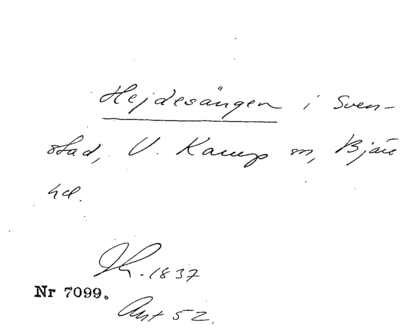 Hejdesängen i Sven-
stad, V. Karup sn, Bjäre
hd.
Jh. 1837
Nr 7099.
Ant 52.